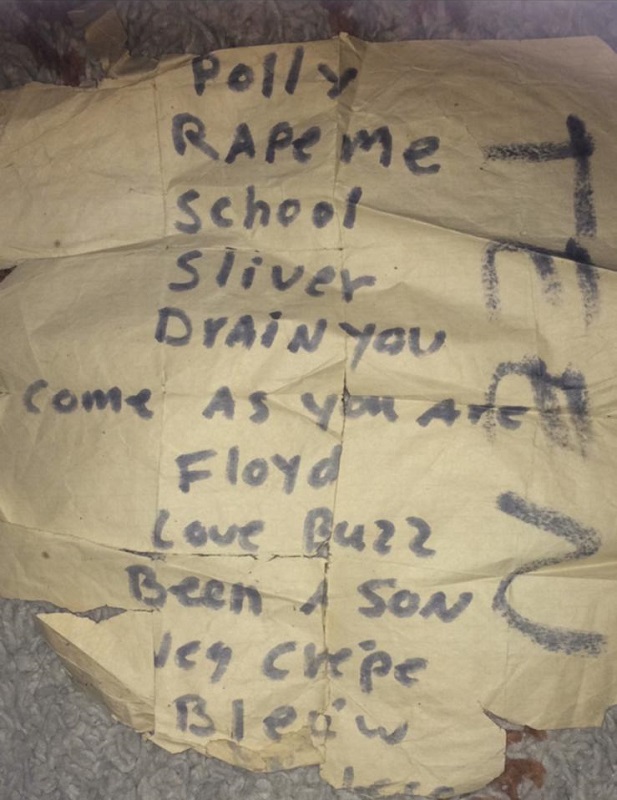 Polly
RAPe me
School
Sliver
DrAiN you
Come As you Are
Floyd
Love Buzz
Been A SON
Creepe
Blew